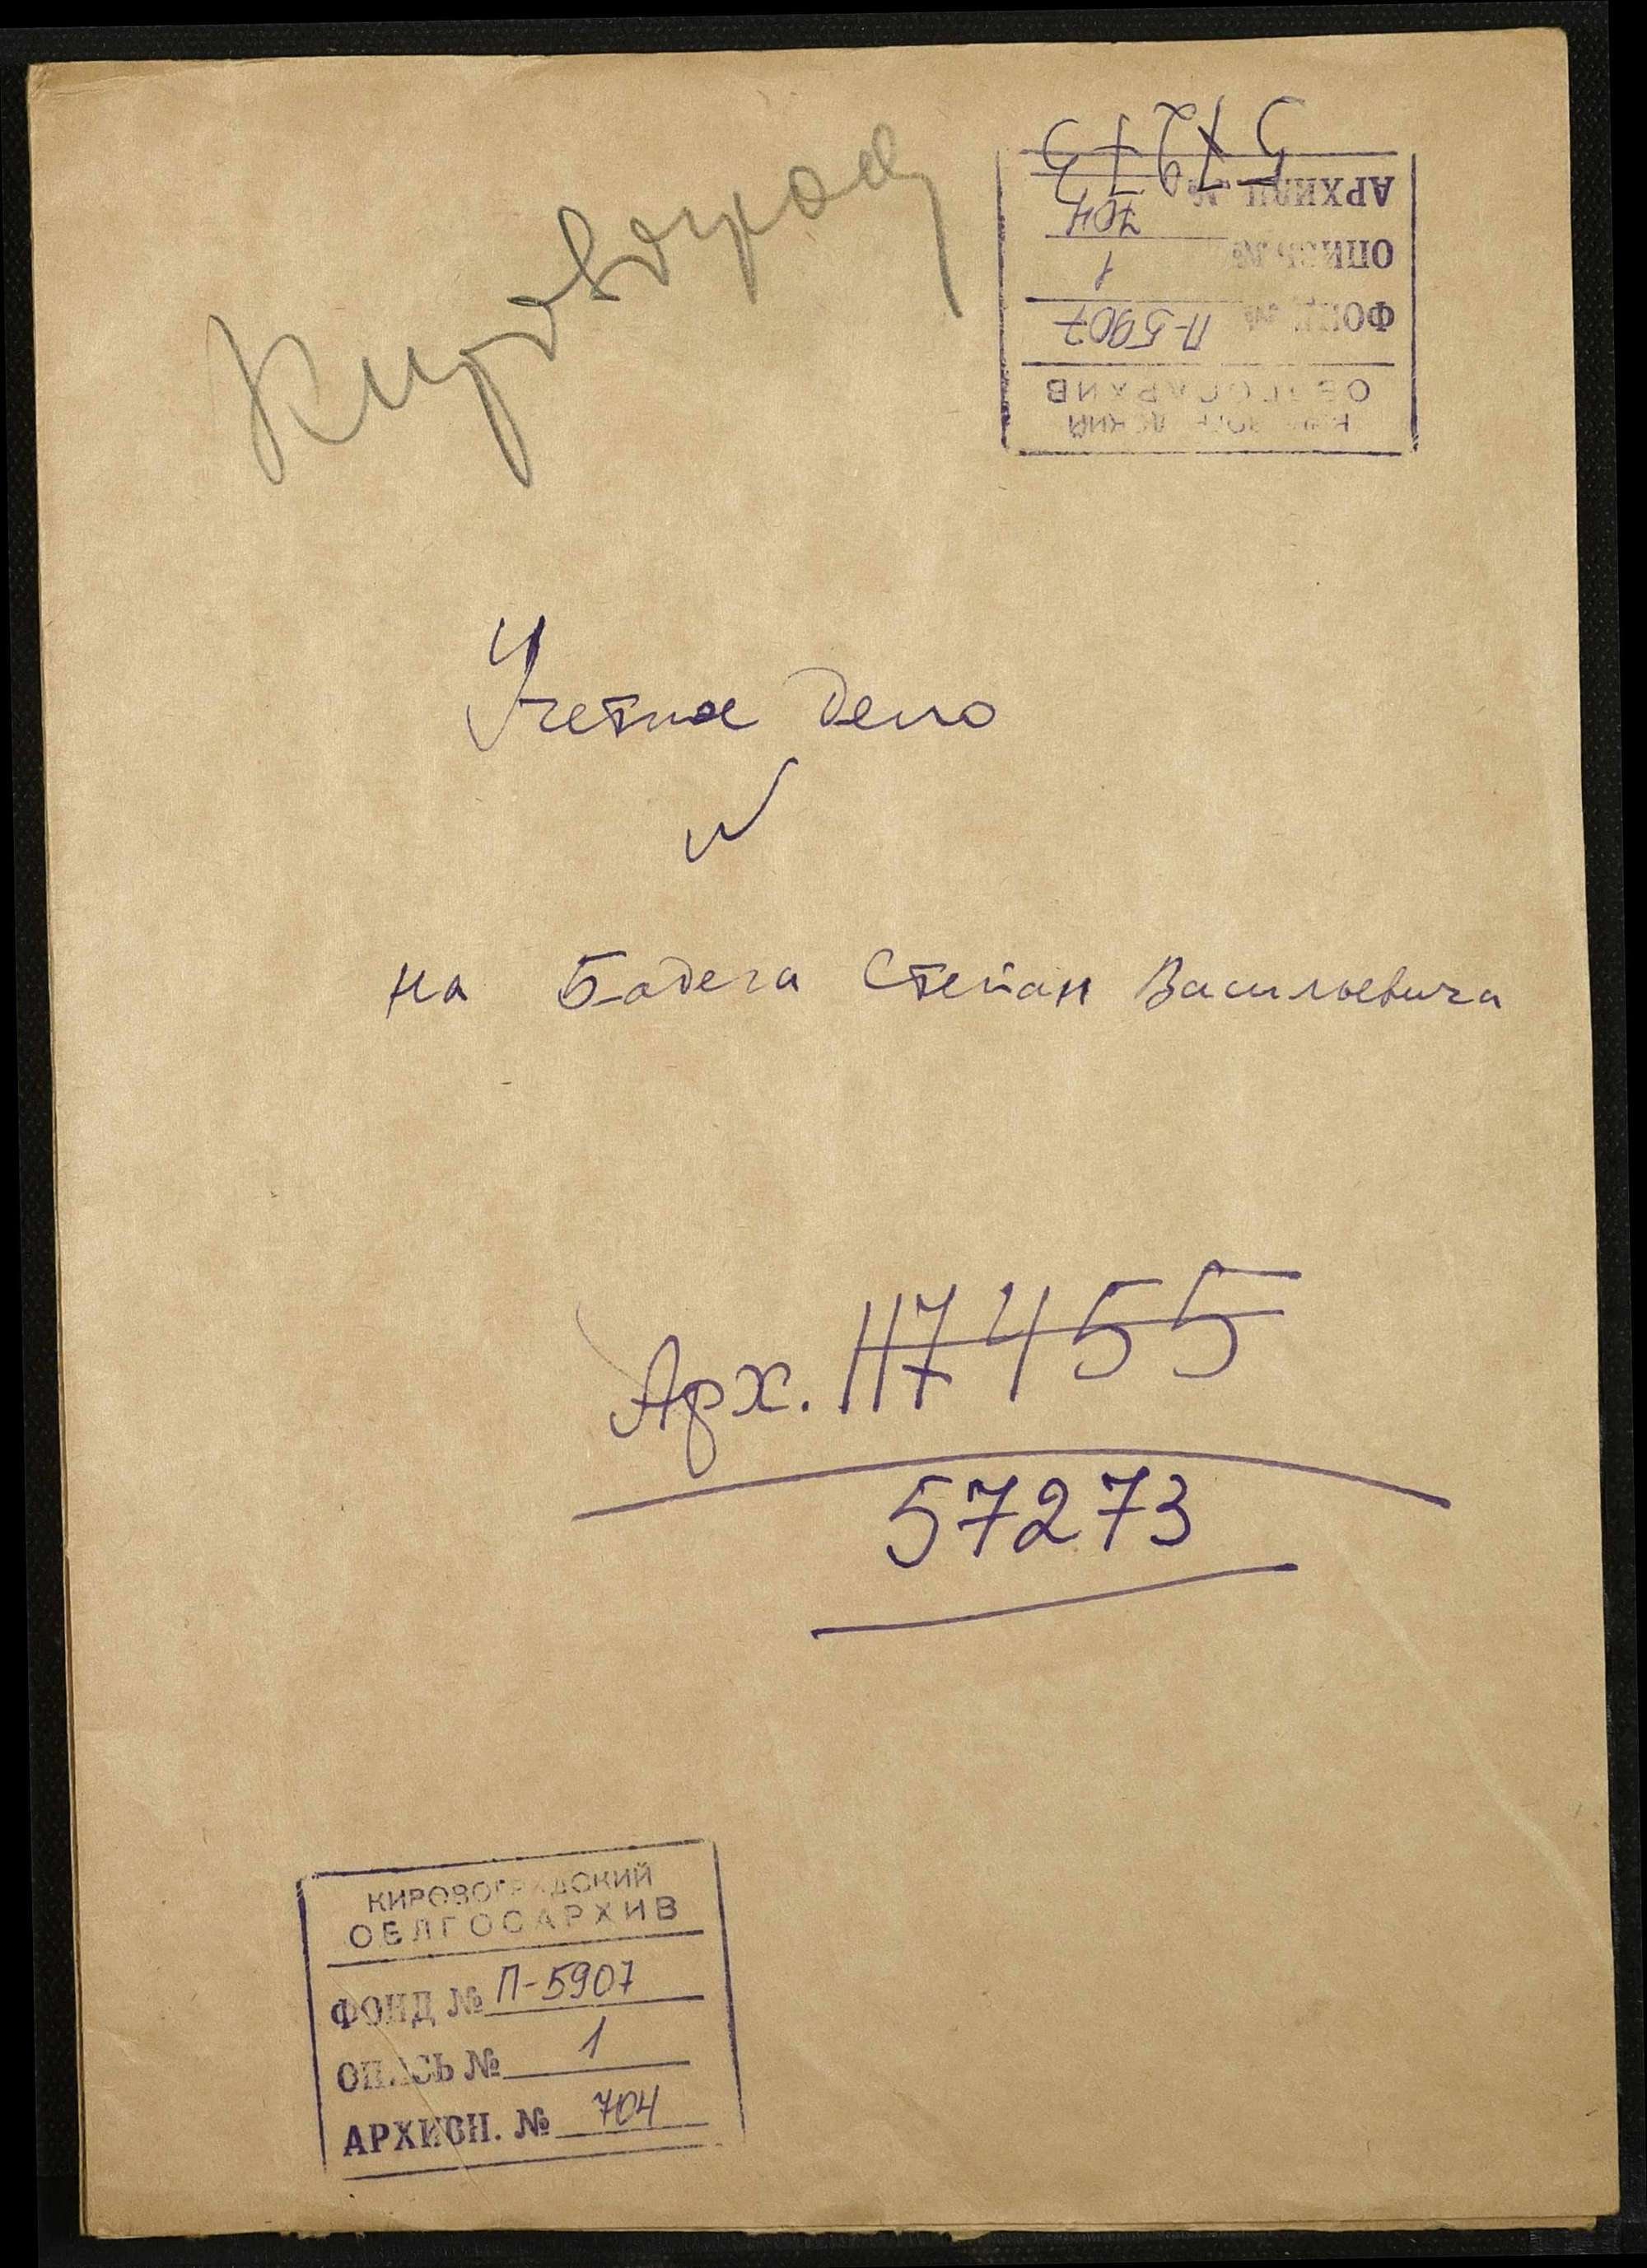 Кировоград
57273
АРХИВН. №
704
ОПИСЬ № 1
ФОНД № П-5907
ОБЛГОСАРХИВ
КИРОВОГРАДСКИЙ
Учетное дело
№
на Бадега Степан Васильевича
Арх. Н7455
57273
КИРОВОГРАДСКИЙ
ОБЛГОСАРХИВ
ФОНД № П-5907
ОПИСЬ № 1
АРХИВН. № 704